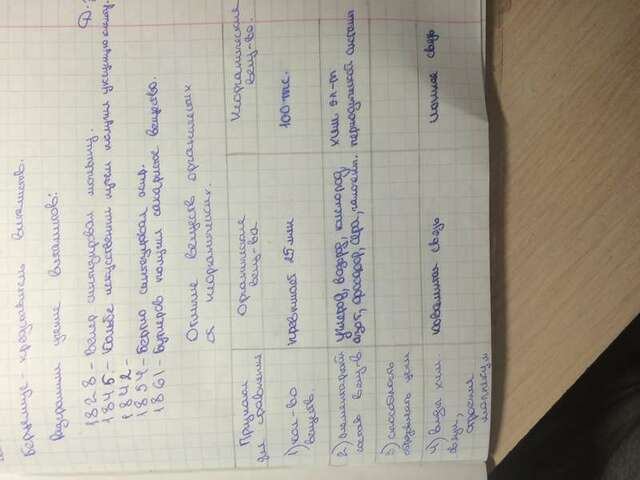 Берцелиус - представитель виталистов.
Разгромили учение виталистов:
1828 - Велер синтезировал мочевину.
1845 - Кольбе искусственным путем получил уксусную кислоту.
1842 -
1854 - Бертло синтезировал жир.
1861 - Бутлеров получил сахаристое вещество.
Отличие веществ органических
от неорганических.
Признаки для сравнения
Органические вещ-ва
Неорганические вещ-во.
1) кол-во веществ.
превышает 25 млн
100 тыс.
2) элементарный состав вещ-в
углерод, водород, кислород,
азот, фосфор, сера, галогены.
хим эл-ты
периодической системы
3) способность
образовывать цепи
4) виды хим.
связи,
строения
молекул
ковалентая связь
ионное связь